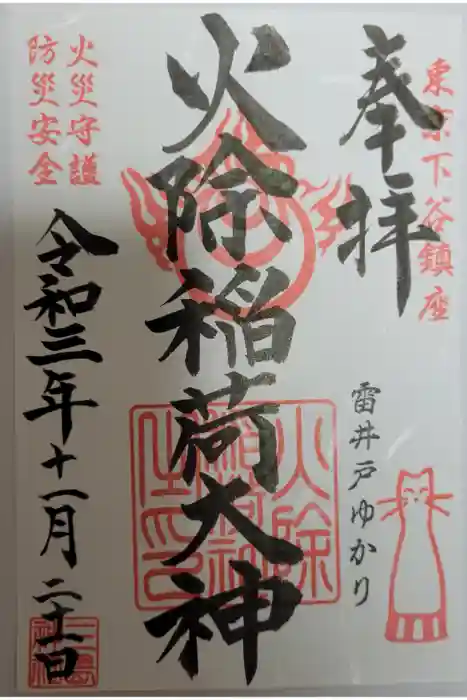 東京下谷鎮座
奉拝
雷井戸ゆかり
火除稲荷大神
火災守護
防災安全
令和三年十一月二十一日
火除
稲荷神
社印
三島
神社